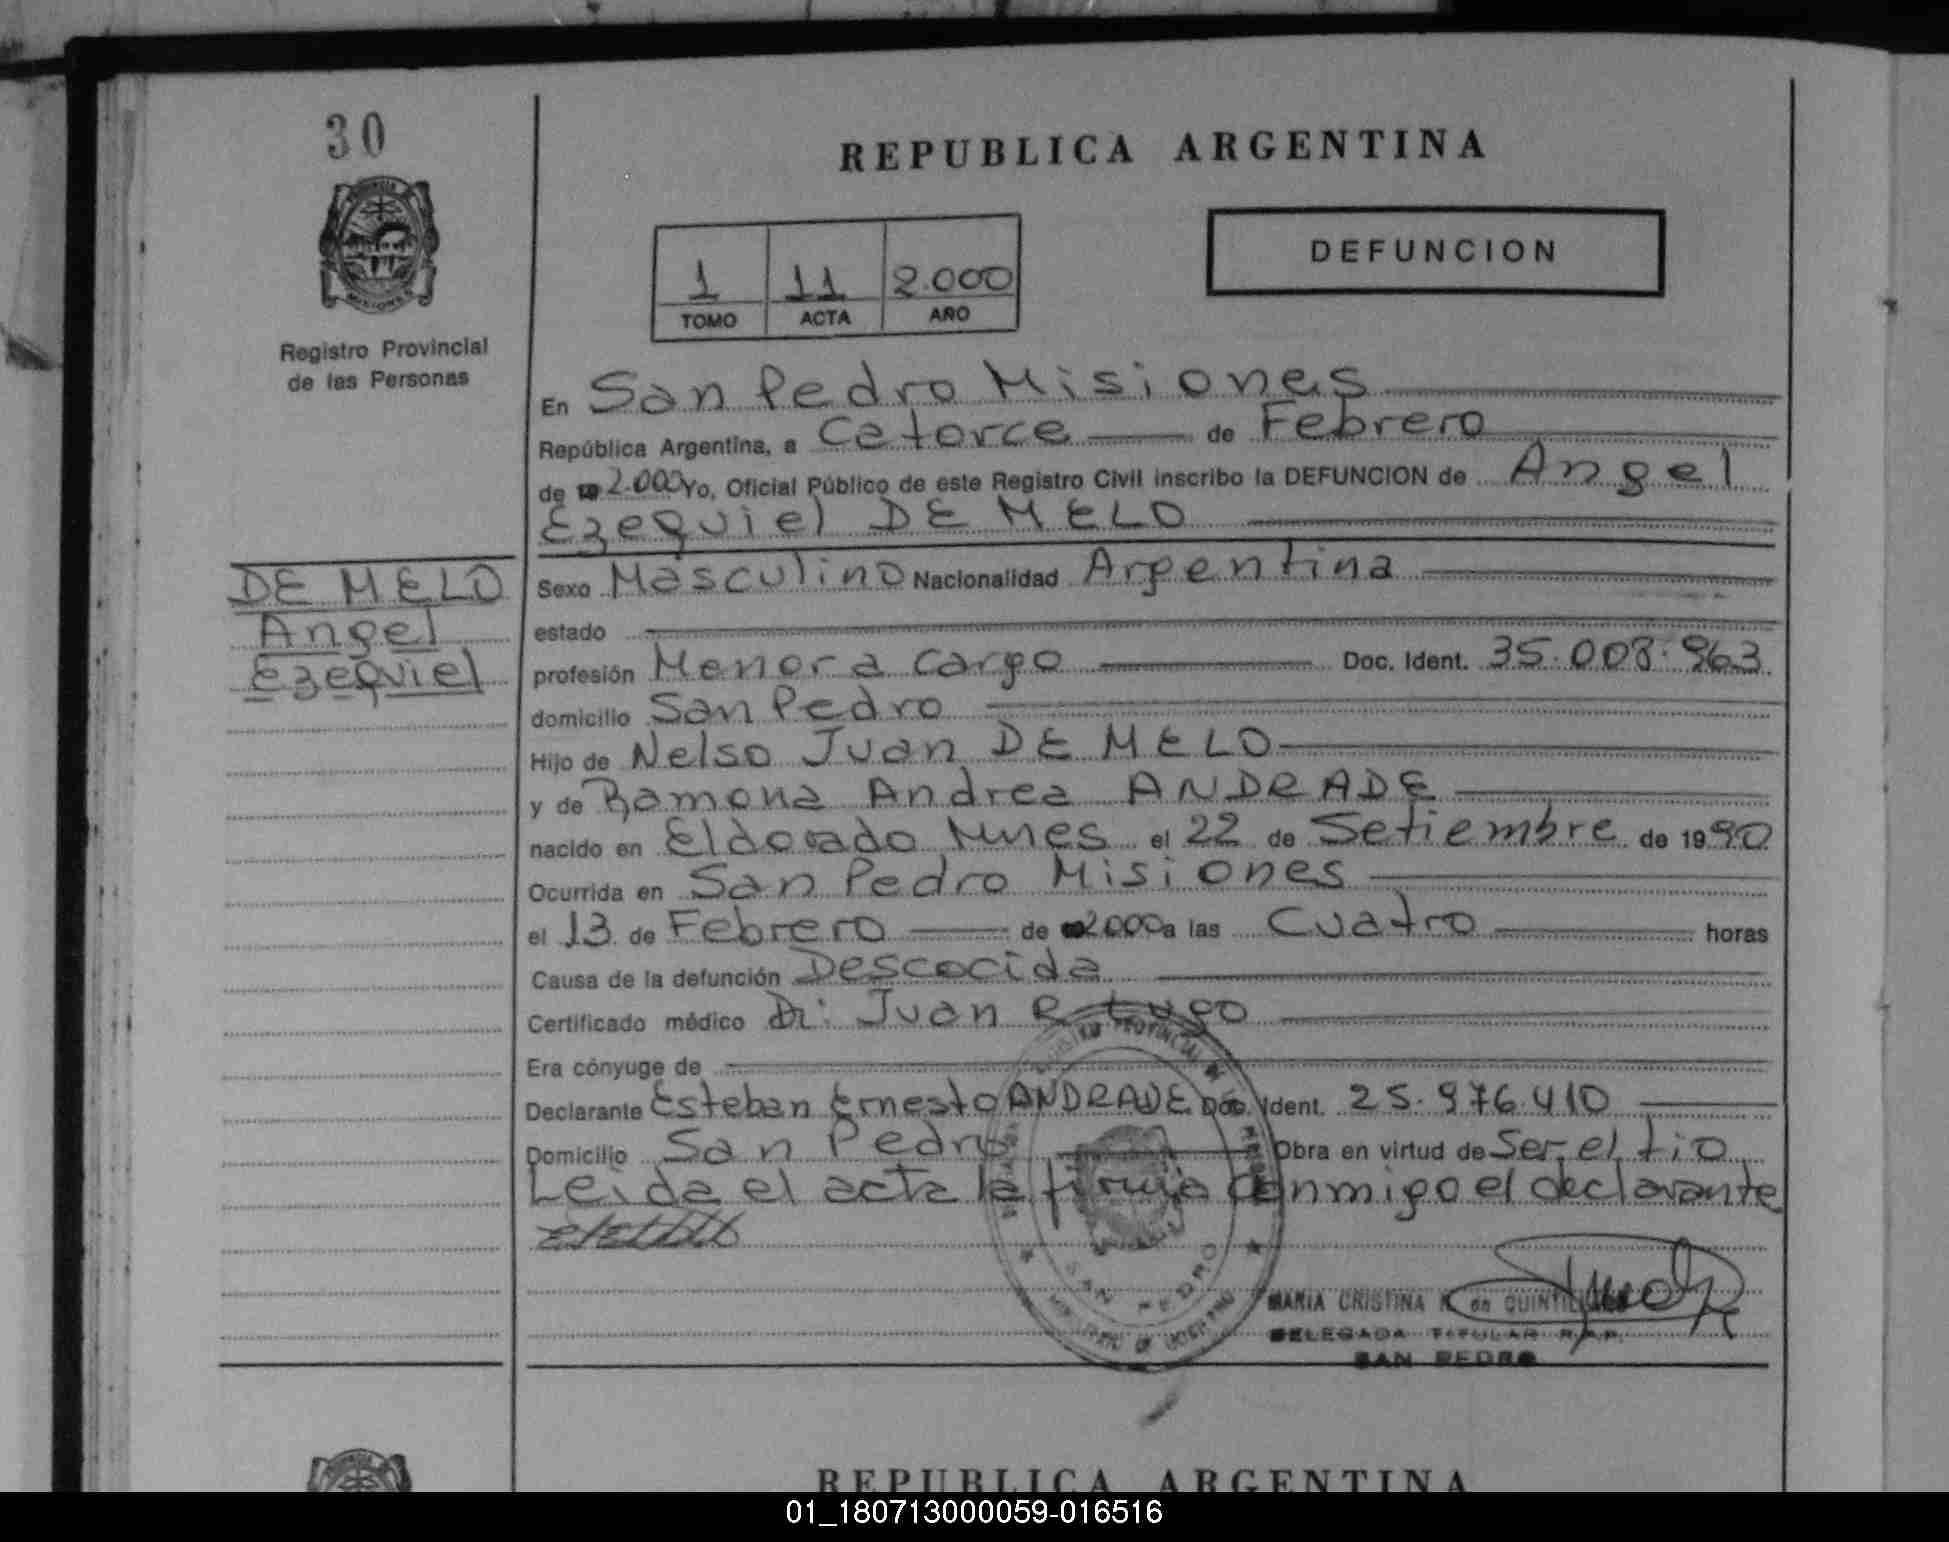 30
REPUBLICA ARGENTINA
DEFUNCION
1 11 2.000
TOMO ACTA AÑO
MISIONES
Registro Provincial
de las Personas
En San Pedro Misiones
República Argentina, a Catorce de Febrero
de 2.000 Yo, Oficial Público de este Registro Civil inscribo la DEFUNCION de Angel
Ezequiel DE MELO
DE MELO
Angel
Ezequiel
Sexo Masculino Nacionalidad Argentina
estado
profesión Menor a cargo Doc. Ident. 35.008.963
domicilio San Pedro
Hijo de Nelso Juan DE MELO
y de Ramona Andrea ANDRADE
nacido en Eldorado Mnes el 22 de Setiembre de 1990
Ocurrida en San Pedro Misiones
el 13 de Febrero de 2000 a las Cuatro horas
Causa de la defunción Descocida
Certificado médico Dr: Juan R Lugo
Era cónyuge de
Declarante Esteban Ernesto ANDRADE Doc. Ident. 25.976.410
Domicilio San Pedro Obra en virtud de Ser el tio
Leida el acta la firma conmigo el declarante
SAN PEDRO
MARIA CRISTINA K de
DELEGADA TITULAR R.P.P.
SAN PEDRO
REPUBLICA ARGENTINA
01_180713000059-016516